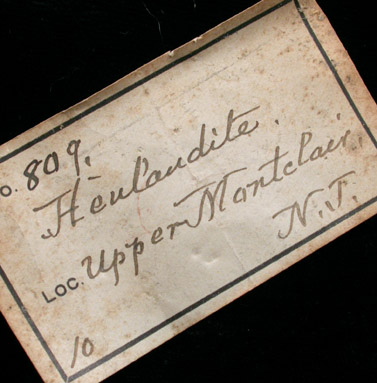 o. 809.
Heulandite.
LOC. Upper Montclair,
N.J.
10